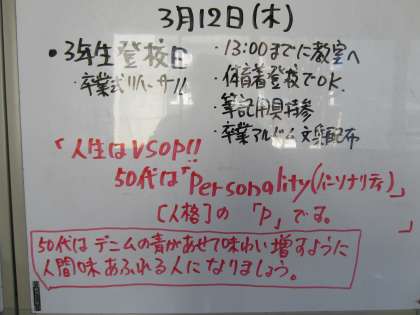 3月12日(木)
•3年生登校日
・卒業式リハーサル
・13:00までに教室へ
・体育着登校でOK.
・筆記用具持参
・卒業アルバム 文集配布
「人生はVSOP!!
50代は「Personality(パーソナリティ)
[人格]の「P」です。」
50代はデニムの青があせて味わい増すように
人間味あふれる人になりましょう。